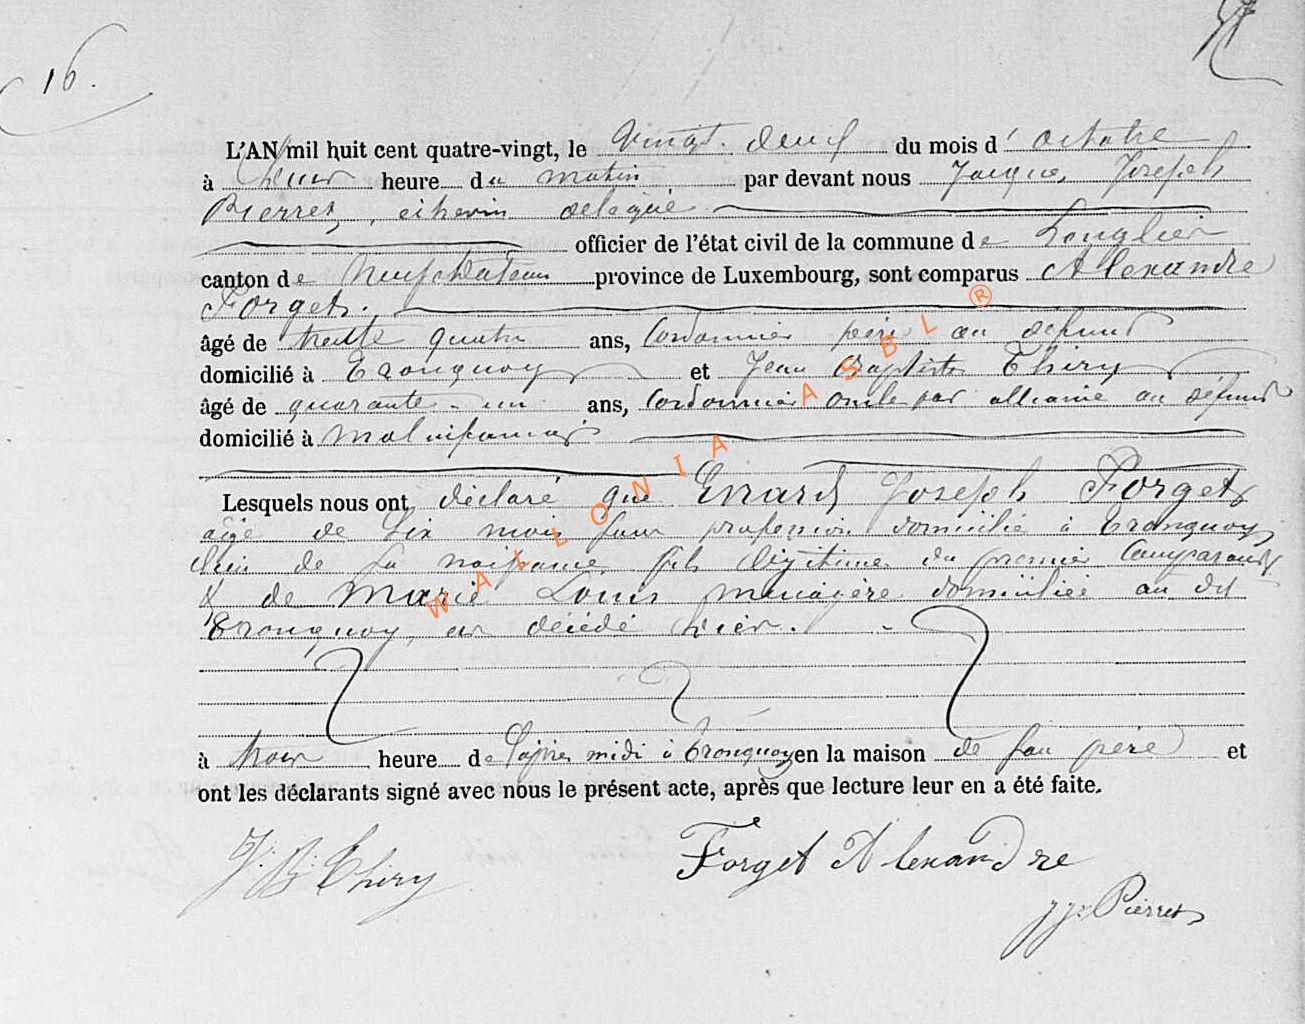 16.
L'AN mil huit cent quatre-vingt, le vingt-deux du mois d'octobre
à heure du matin par devant nous Jacques Joseph
Pierret, échevin délégué
officier de l'état civil de la commune de Longlier
canton de Neufchateau province de Luxembourg, sont comparus Alexandre
Forget.
âgé de trente quatre ans, cordonnier père au défunt
domicilié à Tronquoy et Jean Baptiste Thiry
âgé de quarante-un ans, cordonnier oncle par alliance au défunt
domicilié à Molinfaing
Lesquels nous ont déclaré que Erard Joseph Forget
âgé de six mois sans profession domicilié à Tronquoy
lieu de sa naissance, fils légitime du premier comparant
& de Marie Louis ménagère domiciliée au dit
Tronquoy, est décédé hier.
à trois heure de l'après midi à Tronquoy en la maison de son père et
ont les déclarants signé avec nous le présent acte, après que lecture leur en a été faite.
J. B. Thiry
Forget Alexandre
JJ Pierret
WALLONIA ASBL ®